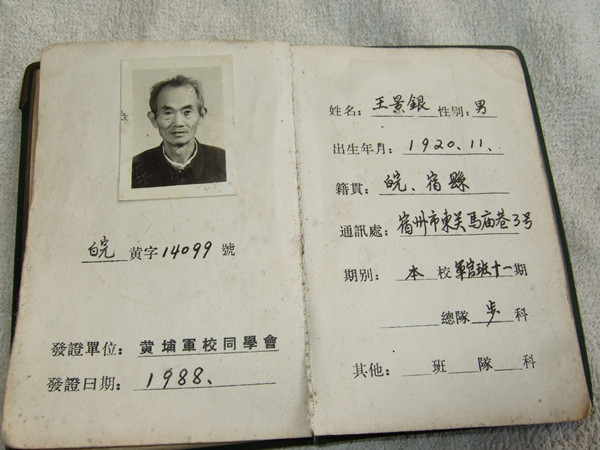 皖 黄字14099 號
發證單位：黄埔軍校同學會
發證日期：1988、
姓名：王景銀 性别：男
出生年月：1920.11、
籍貫：皖、宿縣
通訊處：宿州市東关馬庙巷3号
期别：本 校 軍官班十一期
總隊 步 科
其他： 班 隊 科